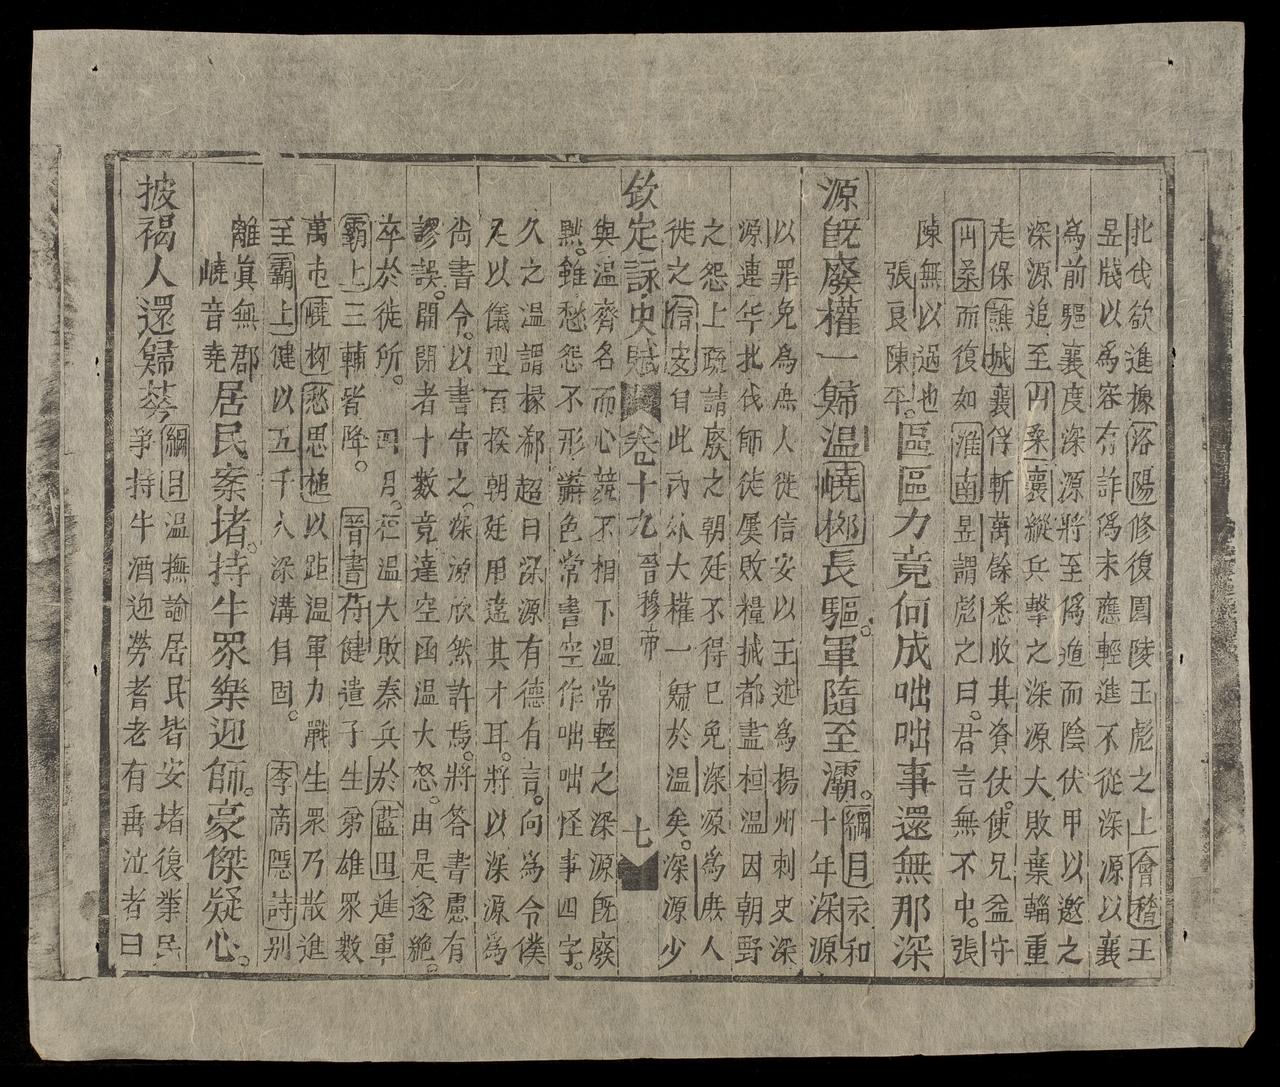 北伐欲進據洛陽修復園陵王彪之上會稽王
昱牋以爲容有詐僞未應輕進不從深源以襄
爲前驅襄度深源將至僞遁而陰伏甲以邀之
深源追至山桑襄縱兵擊之深源大敗棄輜重
走保譙城襄俘斬萬餘悉收其資仗使兄益守
山桑而復如淮南昱謂彪之曰君言無不中張
陳無以過也
張良陳平。區區力竟何成咄咄事還無那深
源旣廢權一歸温嶢桞長驅。軍隨至灞。綱目永和
十年深源
以罪免爲庶人徙信安以王述爲揚州刺史深
源連年北伐師徒屢敗糧械都盡桓温因朝野
之怨上疏請廢之朝廷不得已免深源爲庶人
徙之信安自此內外大權一歸於温矣。深源少
欽定詠史賦 卷十九 晉穆帝 七
與温齊名而心競不相下温常輕之深源旣廢
黜。雖愁怨不形辭色常書空作咄咄怪事四字。
久之温謂掾郗超曰深源有德有言。向爲令僕
足以儀型百揆朝廷用違其才耳。將以深源爲
尚書令。以書告之。深源欣然許焉。將答書慮有
謬誤。開閉者十數竟達空函温大怒。由是遂絕。
卒於徙所。四月。桓温大敗秦兵於藍田進軍
霸上三輔皆降。晉書苻健遣子生弟雄眾數
萬屯嶢桞愁思磓以距温軍力戰生眾乃散進
至霸上健以五千人深溝自固。李商隱詩别
離眞無郡
嶢音堯 居民案堵。持牛眾樂迎師。豪傑疑心。
披褐人還歸華 綱目温撫諭居民皆安堵復業民
爭持牛酒迎勞耆老有垂泣者曰